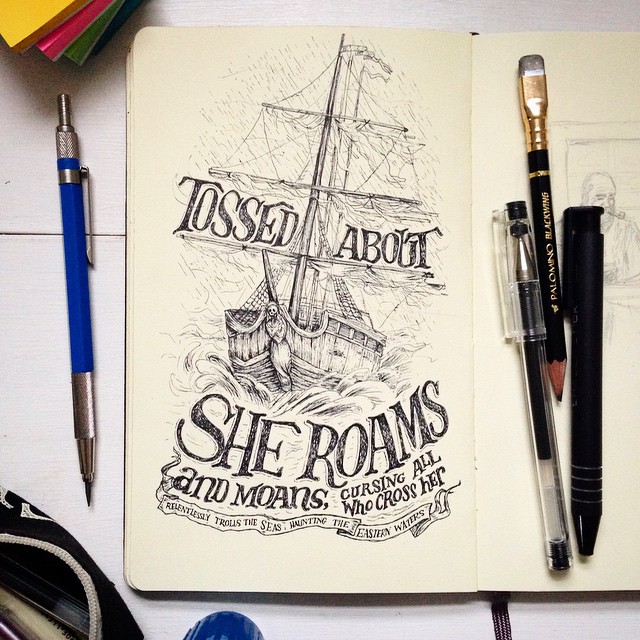 TOSSED ABOUT
SHE ROAMS
and MOANS, CURSING ALL
WHO CROSS her
RELENTLESSLY TROLLS THE SEAS, HAUNTING THE EASTERN WATERS
PALOMINO BLACKWING